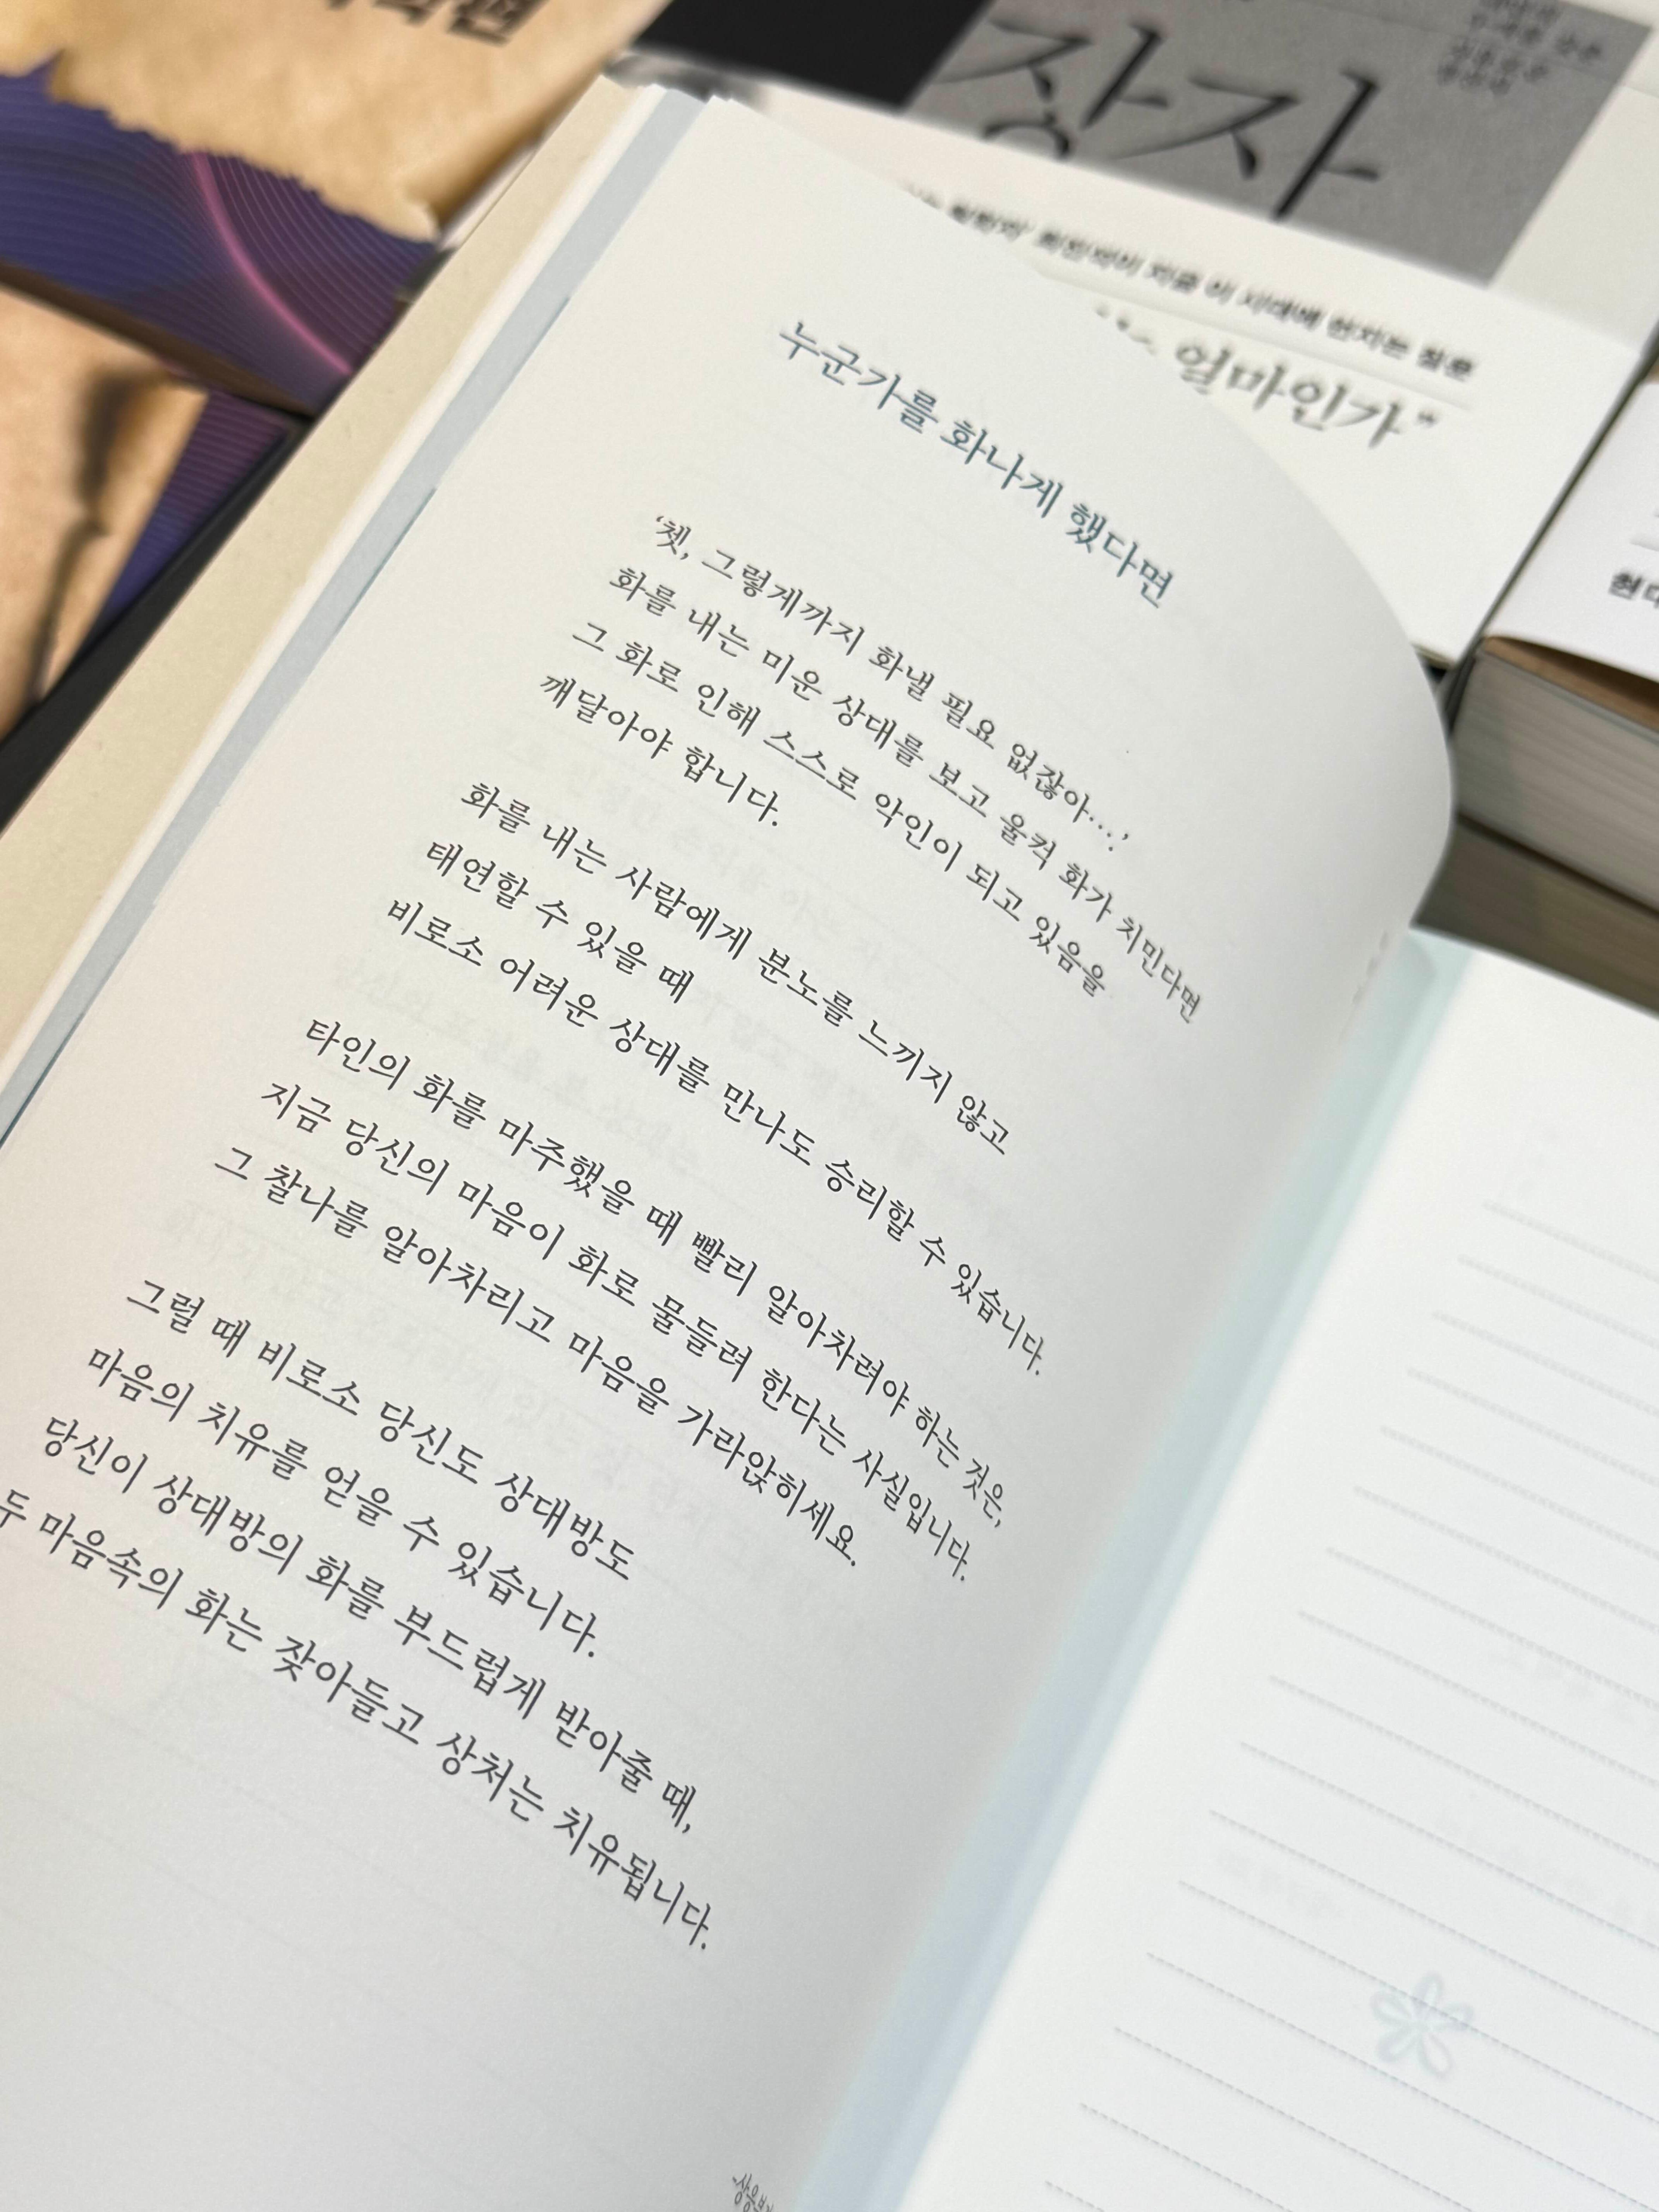 장자
얼마인가”
누군가를 화나게 했다면
‘쳇, 그렇게까지 화낼 필요 없잖아….’
화를 내는 미운 상대를 보고 울컥 화가 치민다면
그 화로 인해 스스로 악인이 되고 있음을
깨달아야 합니다.
화를 내는 사람에게 분노를 느끼지 않고
태연할 수 있을 때
비로소 어려운 상대를 만나도 승리할 수 있습니다.
타인의 화를 마주했을 때 빨리 알아차려야 하는 것은,
지금 당신의 마음이 화로 물들려 한다는 사실입니다.
그 찰나를 알아차리고 마음을 가라앉히세요.
그럴 때 비로소 당신도 상대방도
마음의 치유를 얻을 수 있습니다.
당신이 상대방의 화를 부드럽게 받아줄 때,
두 마음속의 화는 잦아들고 상처는 치유됩니다.